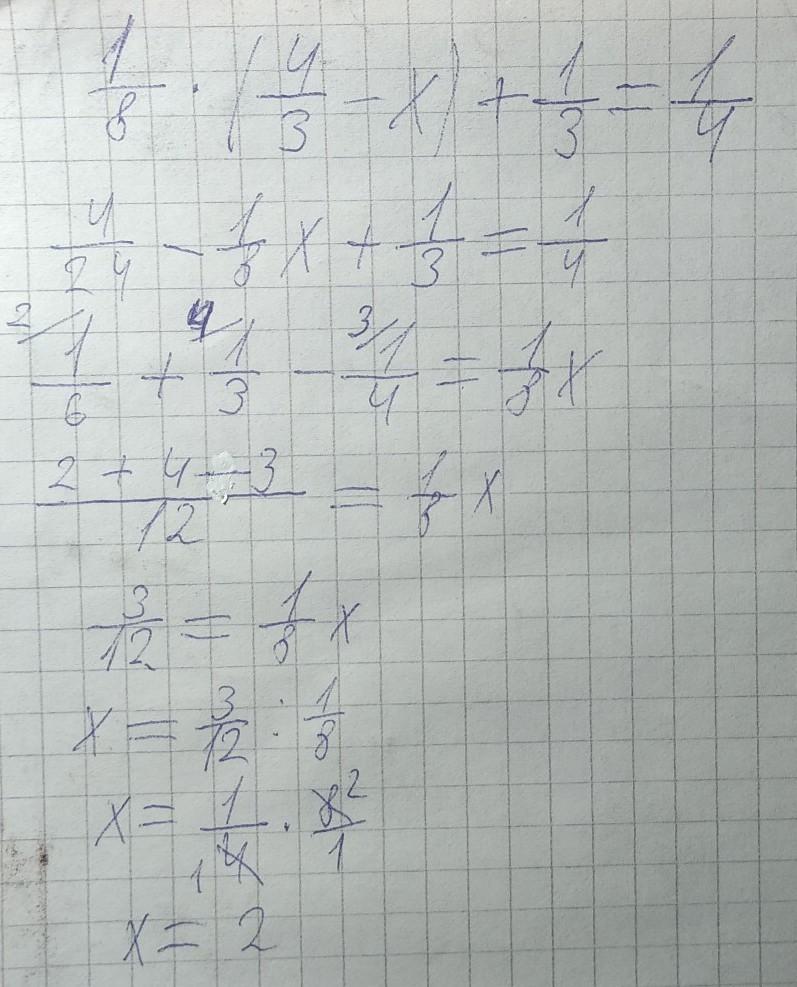 1/8 · (4/3 - x) + 1/3 = 1/4
4/24 - 1/8 x + 1/3 = 1/4
2/ 1/6 + 4/ 1/3 - 3/ 1/4 = 1/8 x
(2 + 4 - 3)/12 = 1/8 x
3/12 = 1/8 x
x = 3/12 : 1/8
x = 1/4 1 · 8/1 2
x = 2